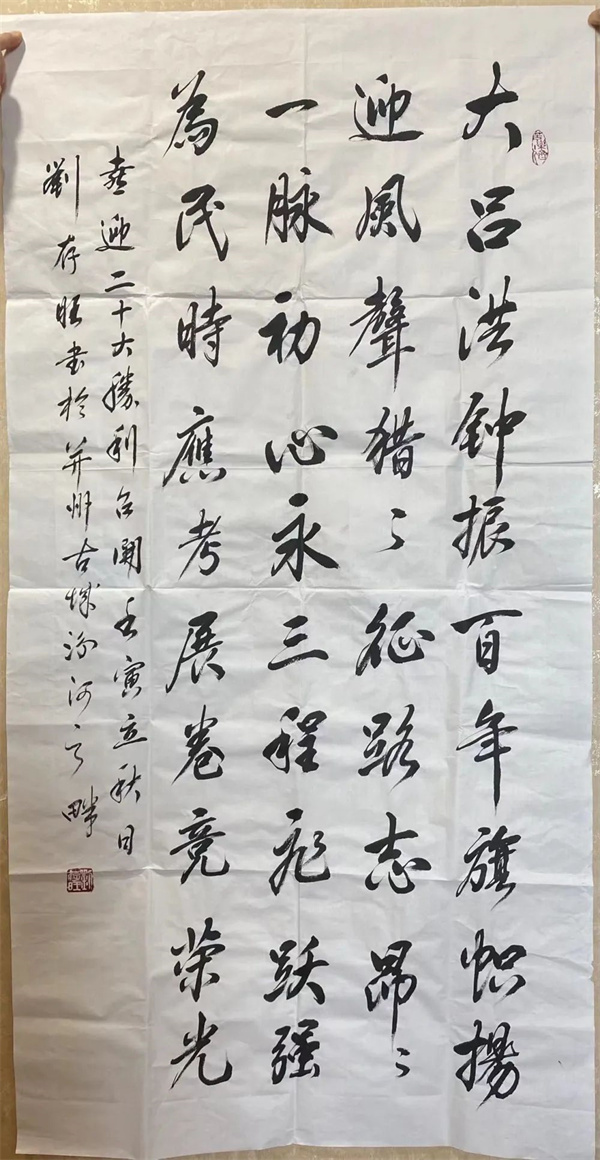 大吕洪钟振百年旗帜揚
迎風聲猎〻征路志昂〻
一脉初心永三程飛跃强
為民時應考展卷竞荣光
喜迎二十大勝利召開壬寅立秋日
劉存旺書於并州古城汾河之畔